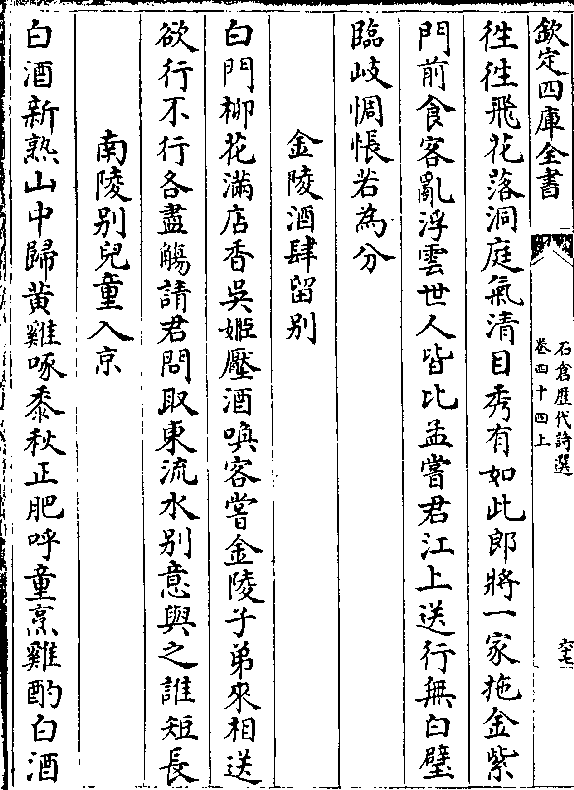 欽定四庫全書
石倉歴代詩選
卷四十四上
六七
徃徃飛花落洞庭氣清目秀有如此郎將一家拖金紫
門前食客亂浮雲世人皆比孟嘗君江上送行無白璧
臨岐惆悵若為分
金陵酒肆留别
白門栁花滿店香吳姬壓酒喚客嘗金陵子弟來相送
欲行不行各盡觴請君問取東流水别意與之誰短長
南陵别兒童入京
白酒新熟山中歸黄雞啄黍秋正肥呼童烹雞酌白酒